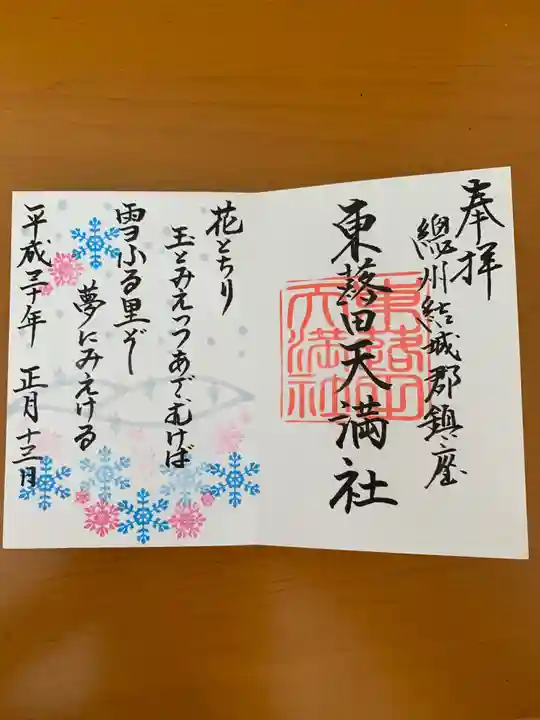 奉拝
總州結城郡鎮座
東蕗田天満社
東蕗田天満社
花とちり
玉とみえつつあざむけば
雪ふる里ぞ
夢にみえける
平成三十年 正月十三日